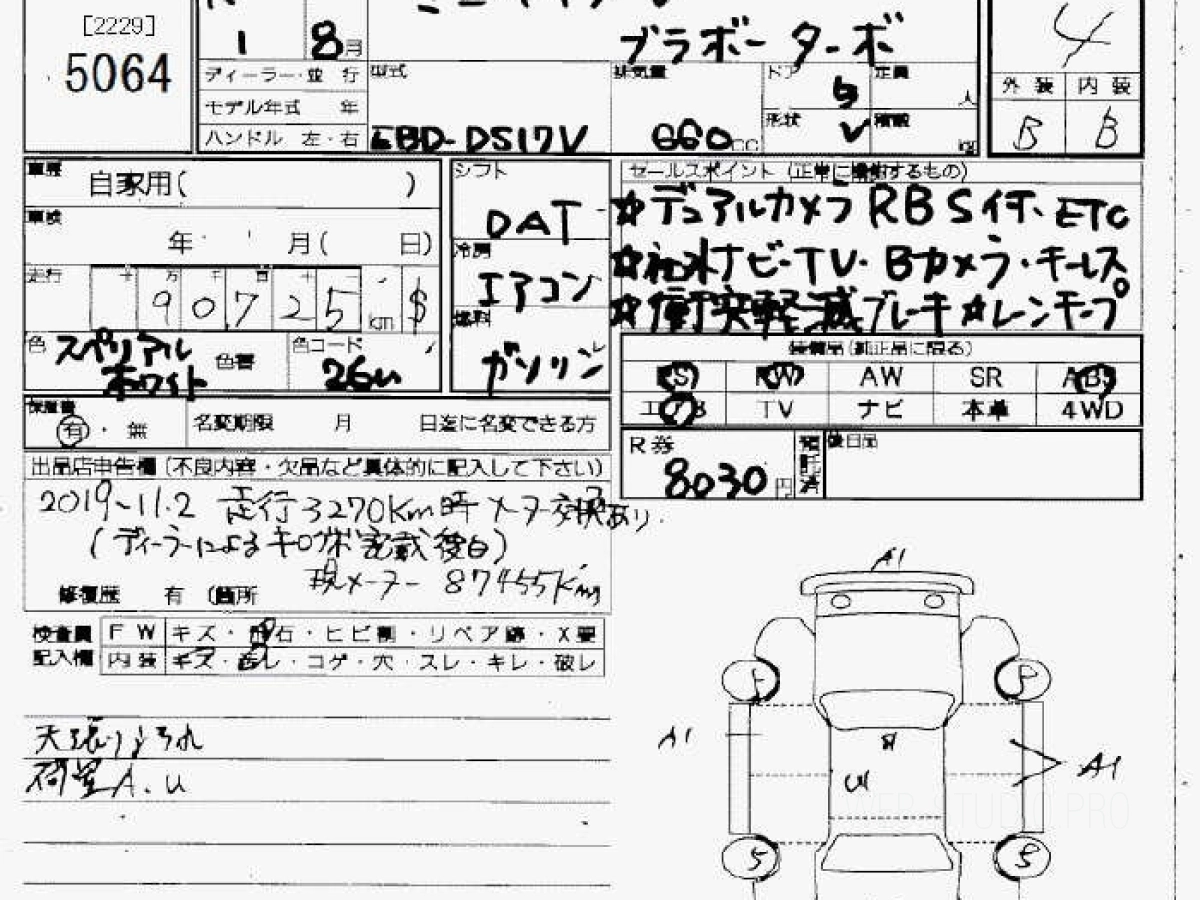 [2229]
5064
1 8月
ブラボー ターボ
4
ディーラー・並 行
型式
排気量
ドア
定員
外 装 内 装
モデル年式 年
5
人
形状
積載
ハンドル 左・右
EBD-DS17V
660cc
V
kg
B B
車歴
自家用( )
シフト
DAT
セールスポイント (正常に機能するもの)
☆デュアルカメラ RBSイチ、ETC
車検
年 月( 日)
冷房
エアコン
☆社外ナビ・TV・Bカメラ・キーレス
走行
十 万 千 百 十 一
90725 km $
燃料
ガソリン
☆衝突軽減ブレーキ☆レーンキープ
色
スペリアル
ホワイト
色替
色コード
26U
装備品(純正品に限る)
PS PW AW SR ABS
エアB TV ナビ 本革 4WD
保証書
有・無
名変期限 月 日迄に名変できる方
R券
8030円
預託済
後日品
出品店申告欄(不良内容・欠品など具体的に記入して下さい)
2019-11.2 走行3270Km時 メーター交換あり.
(ディーラーによるキロ数記載後日)
現メーター 87455Km
修復歴 有 (箇所
検査員
記入欄
F W キズ・飛石・ヒビ割・リペア跡・X要
内 装 キズ・汚レ・コゲ・穴・スレ・キレ・破レ
天張りよごれ
荷室A.U
A1
A1
A1
U
5
5
WEB STUDIO PRO